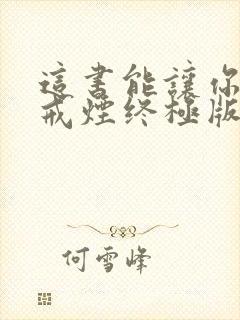 這書能讓你
戒煙終極版
何雪峰